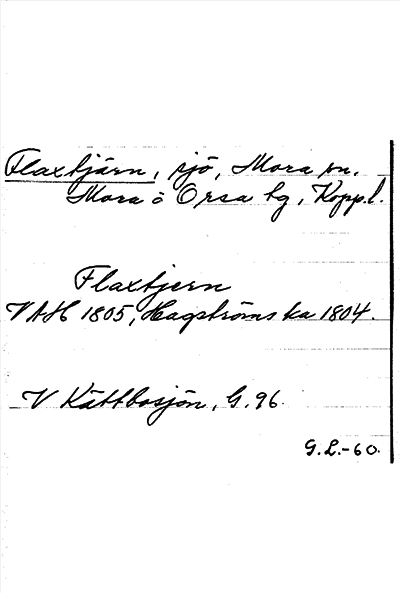 Flaxtjärn, sjö, Mora sn.
Mora o Orsa tg, Kopp.l.
Flaxtjern
VAH 1805, Hagströms ka 1804.
V Kättbosjön, G.96.
G.L.-60.